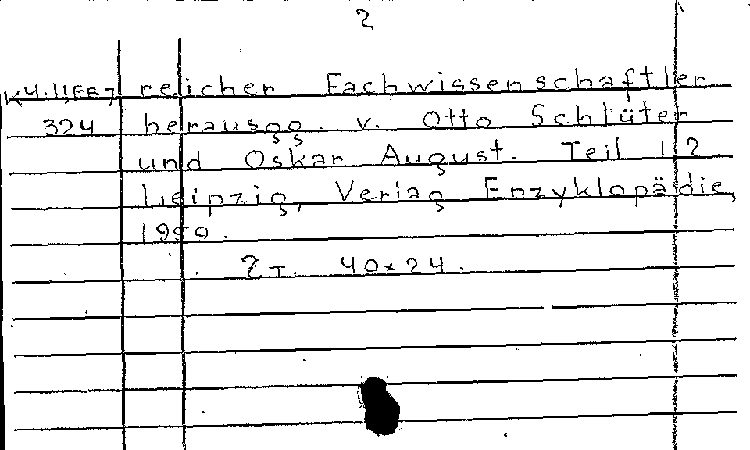 2
reicher Fachwissenschaftler
324 herausgg. v. Otto Schlüter
und Oskar August. Teil 1.2
Leipzig, Verlag Enzyklopädie,
1959.
2 T. 40x24.